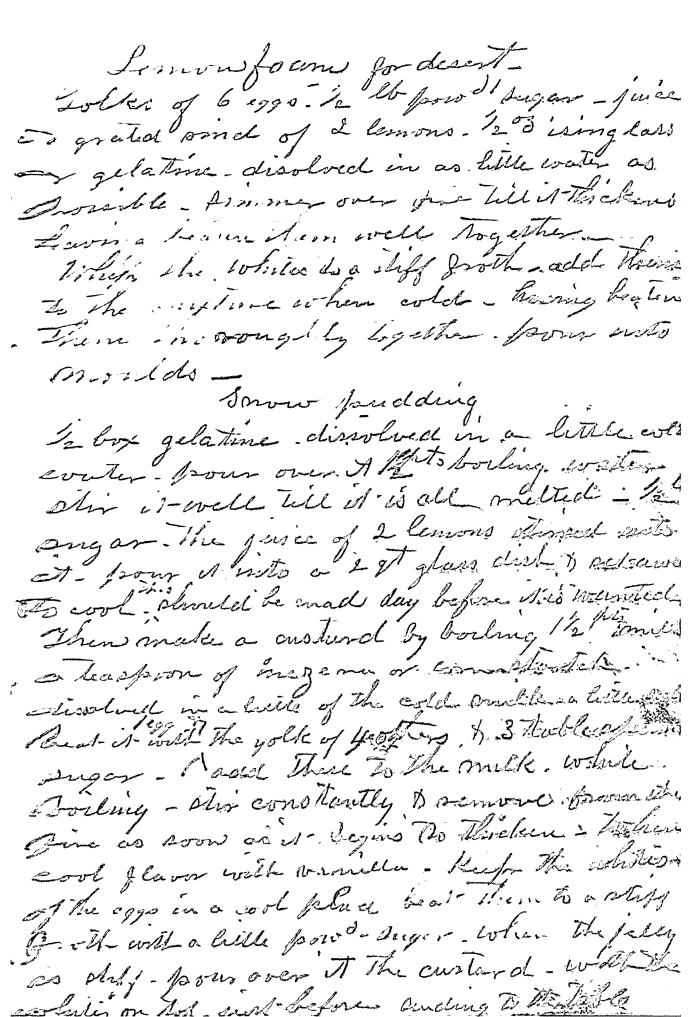 Lemon foam for desert -
Yolks of 6 eggs - ½ lb powd sugar - juice
& grated rind of 2 lemons - ½ oz isinglass
or gelatine - disolved in as little water as
possible - simmer over fire till it thickens
having them well together -
Whip the whites to a stiff froth - add them
to the mixture when cold - having beaten
them thoroughly together - pour into
moulds -
Snow pudding
½ box gelatine - dissolved in a little cold
water - pour over it pts boiling water
stir it well till it is all melted - ½ lb
sugar - The juice of 2 lemons into
it - pour it into a 2 qt glass dish &
to cool - this should be mad day before it is wanted
Then make a custard by boiling 1½ pts milk
a teaspoon of maizena or cornstarch
dissolved in a little of the cold milk a little
Beat it with the yolk of 4 & 3
sugar - add these to the milk - while
boiling - stir constantly & remove from the
fire as soon as it begins to thicken - when
cool flavor with vanilla - Keep the whites
of the eggs in a cool beat them to a stiff
froth with a little powd - sugar - when the jelly
is stiff - pour over it the custard - with the
whites on top - just before sending to the table